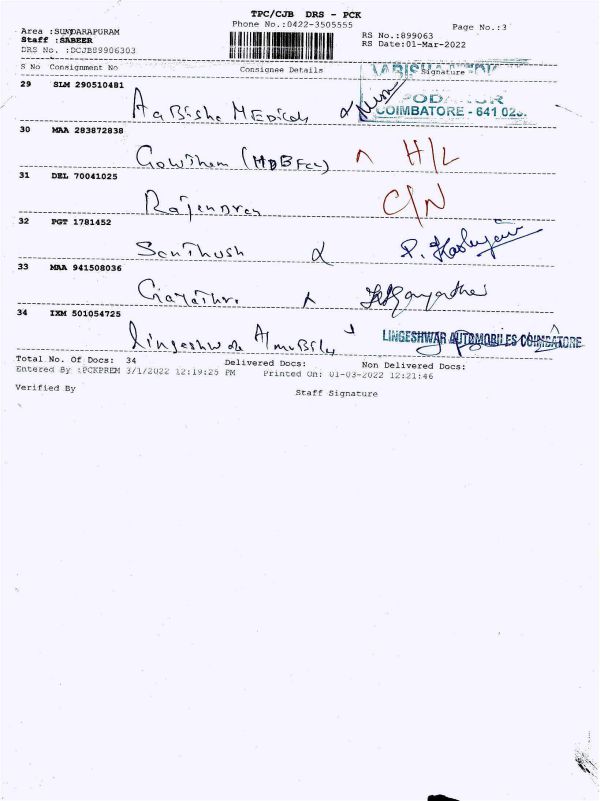 TPC/CJB DRS - PCK
Phone No.:0422-3505555
Page No.:3
Area :SUNDARAPURAM
Staff :SABEER
DRS No. :DCJB89906303
RS No.:899063
RS Date:01-Mar-2022
S No Consignment No Consignee Details Signature
29 SLM 290510481
Medicals
COIMBATORE - 641 023.
30 MAA 283872838
Gowtham (HDBFCC) H/L
31 DEL 70041025
Rajendren C/N
32 PGT 1781452
Santhush
33 MAA 941508036
Gayathri
34 IXM 501054725
Lingeshwar
LINGESHWAR AUTOMOBILES COIMBATORE
Total No. Of Docs: 34 Delivered Docs: Non Delivered Docs:
Entered By :PCKPREM 3/1/2022 12:19:25 PM Printed On: 01-03-2022 12:21:46
Verified By Staff Signature